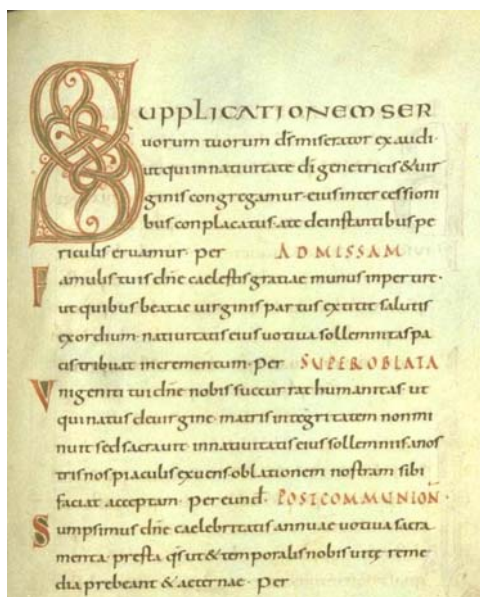 SUPPLICATIONEM SER
uorum tuorum ds miserator exaudi·
ut qui in natiuitate di genetricis & uir
ginis congregamur· eius intercessioni
bus conplacatus· a te de instantibus pe
riculis eruamur· per AD MISSAM
Famulis tuis dne caelestis gratiae munus inpertire·
ut quibus beatae uirginis partus extitit salutis
exordium· natiuitatis eius uotiua sollemnitas pa
cis tribuat incrementum· Per SUPER OBLATA
Vnigeniti tui dne nobis succurrat humanitas· ut
qui natus de uirgine· matris integritatem non mi
nuit sed sacrauit· in natiuitatis eius sollemniis· a nos
tris nos piaculis exuens· oblationem nostram sibi
faciat acceptam· Per eund· POSTCOMMUNION
Sumpsimus dne caelebritatis annuae uotiua sacra
menta· presta qs ut & temporalis nobis uitę reme
dia prebeant & aeternae· Per